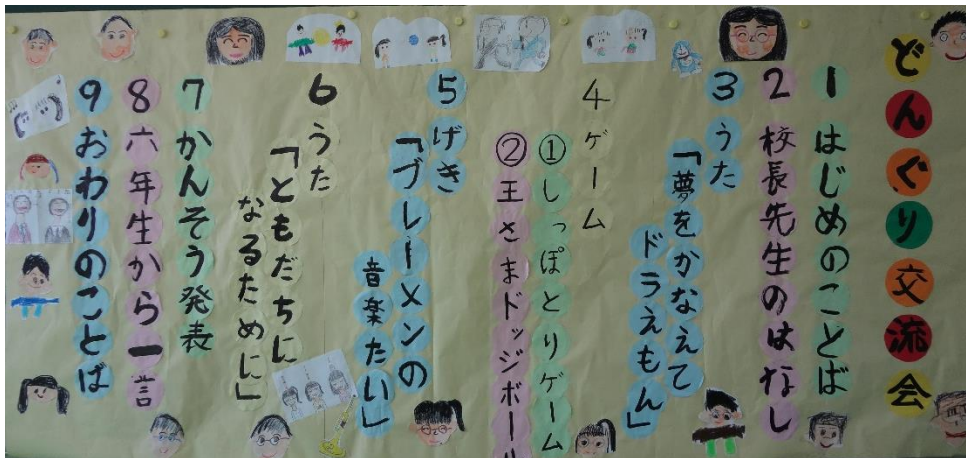 どんぐり交流会
1 はじめのことば
2 校長先生のはなし
3 うた
「夢をかなえて
ドラえもん」
4 ゲーム
①しっぽとりゲーム
②王さまドッジボール
5 げき
「ブレーメンの
音楽たい」
6 うた
「ともだちに
なるために」
7 かんそう発表
8 六年生から一言
9 おわりのことば